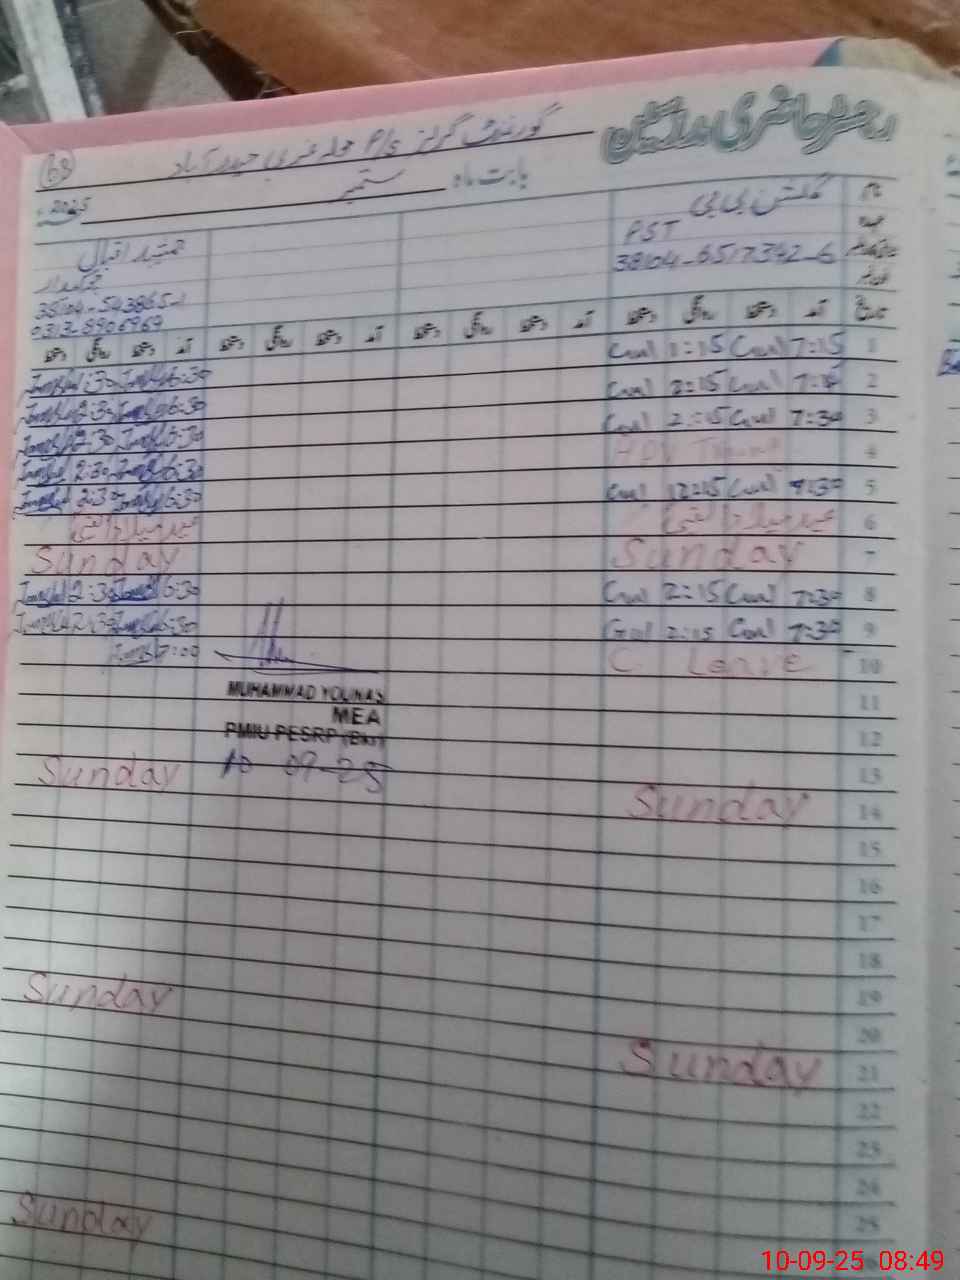 رجسٹر حاضری ملازمین
گورنمنٹ گرلز P/s محلہ غربی حیدر آباد
68
بابت ماہ ستمبر 2025ء
نام گلشن بی بی
عہدہ PST
38104-6517342-6
جمشید اقبال
چوکیدار
0313
تاریخ آمد دستخط روانگی دستخط آمد دستخط روانگی دستخط آمد دستخط روانگی دستخط آمد دستخط روانگی دستخط
1 7:15 Gul 1:15 Gul
2 7:15 Gul 2:15 Gul 6:30 Jamshed 2:30 Jamshed
3 7:30 Gul 2:15 Gul 6:30 Jamshed 2:30 Jamshed
4
5 7:30 Gul 12:15 Gul 6:30 Jamshed 2:30 Jamshed
6 عید میلاد النبیؐ عید میلاد النبیؐ
7 Sunday Sunday
8 7:30 Gul 2:15 Gul 6:30 Jamshed 2:30 Jamshed
9 7:30 Gul 2:15 Gul 6:30 Jamshed 2:30 Jamshed
10 C. Leave 7:00 Jamshed
11 MUHAMMAD YOUNAS
MEA
12 PMIU PESRP (Bkr)
13 10 09-25
14 Sunday Sunday
15
16
17
18
19
20
21 Sunday Sunday
22
23
24
25
Sunday
10-09-25 08:49